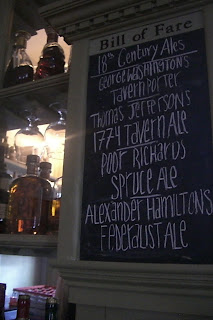 Bill of Fare
18th Century Ales
George Washingtons
Tavern Porter
Thomas Jeffersons
1774 Tavern Ale
Poor Richards
Spruce Ale
Alexander Hamiltons
Federalist Ale